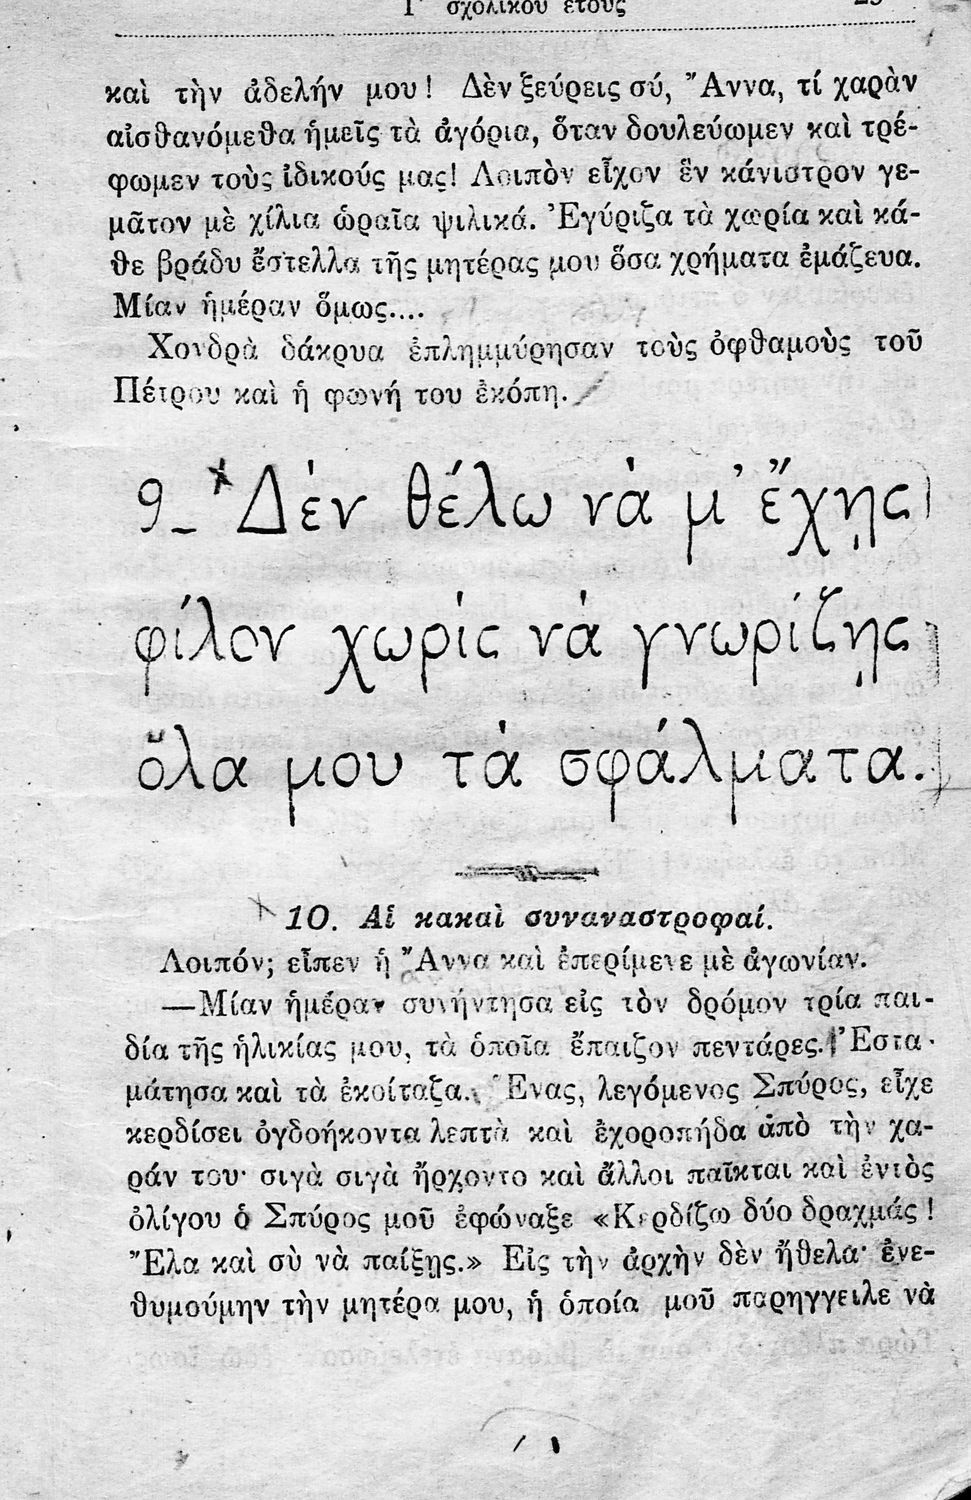 Γ′ σχολικοῦ ἔτους 29
καὶ τὴν ἀδελήν μου! Δὲν ξεύρεις σύ, Ἄννα, τί χαρὰν
αἰσθανόμεθα ἡμεῖς τὰ ἀγόρια, ὅταν δουλεύωμεν καὶ τρέ-
φωμεν τοὺς ἰδικούς μας! Λοιπὸν εἶχον ἓν κάνιστρον γε-
μᾶτον μὲ χίλια ὡραῖα ψιλικά. Ἐγύριζα τὰ χωρία καὶ κά-
θε βράδυ ἔστελλα τῆς μητέρας μου ὅσα χρήματα ἐμάζευα.
Μίαν ἡμέραν ὅμως....
Χονδρὰ δάκρυα ἐπλημμύρησαν τοὺς ὀφθαμοὺς τοῦ
Πέτρου καὶ ἡ φωνή του ἐκόπη.
9_ Δὲν θέλω νὰ μ' ἔχῃς
φίλον χωρὶς νὰ γνωρίζῃς
ὅλα μου τὰ σφάλματα.
10. Αἱ κακαὶ συναναστροφαί.
Λοιπόν; εἶπεν ἡ Ἄννα καὶ ἐπερίμενε μὲ ἀγωνίαν.
—Μίαν ἡμέραν συνήντησα εἰς τὸν δρόμον τρία παι-
δία τῆς ἡλικίας μου, τὰ ὁποῖα ἔπαιζον πεντάρες. Ἐστα-
μάτησα καὶ τὰ ἐκοίταζα. Ἕνας, λεγόμενος Σπύρος, εἶχε
κερδίσει ὀγδοήκοντα λεπτὰ καὶ ἐχοροπήδα ἀπὸ τὴν χα-
ράν του· σιγὰ σιγὰ ἤρχοντο καὶ ἄλλοι παῖκται καὶ ἐντὸς
ὀλίγου ὁ Σπύρος μοῦ ἐφώναξε «Κερδίζω δύο δραχμάς!
Ἔλα καὶ σὺ νὰ παίξῃς.» Εἰς τὴν ἀρχὴν δὲν ἤθελα· ἐνε-
θυμούμην τὴν μητέρα μου, ἡ ὁποία μοῦ παρηγγειλε νὰ